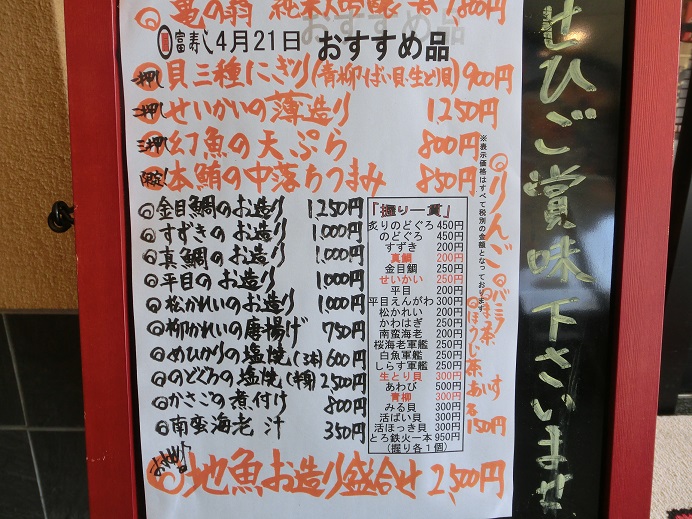 亀の翁 純米大吟醸 1,800円
富寿し4月21日 おすすめ品
一押し ◎貝三種にぎり(青柳・ばい貝・生とり貝) 900円
二押し ◎せいかいの薄造り 1250円
三押し ◎幻魚の天ぷら 800円
限定 ◎本鮪の中落ちつまみ 850円
◎金目鯛のお造り 1,250円
◎すずきのお造り 1,000円
◎真鯛のお造り 1,000円
◎平目のお造り 1,000円
◎松かれいのお造り 1,000円
◎柳かれいの唐揚げ 750円
◎めひかりの塩焼(3本) 600円
◎のどぐろの塩焼(半身) 2,500円
◎かさごの煮付け 800円
◎南蛮海老汁 350円
「握り一貫」
炙りのどぐろ 450円
のどぐろ 450円
すずき 200円
真鯛 200円
金目鯛 250円
せいかい 250円
平目 200円
平目えんがわ 300円
松かれい 200円
かわはぎ 250円
南蛮海老 200円
桜海老軍艦 250円
白魚軍艦 250円
しらす軍艦 250円
生とり貝 300円
あわび 500円
青柳 300円
みる貝 300円
活ばい貝 300円
活ほっき貝 300円
とろ鉄火一本 950円
(握り各1個)
◎地魚お造り盛合せ 2,500円
※表示価格はすべて税別の金額となっております。
◎りんご
◎バニラ
◎ほうじ茶
あいす
各150円
ぜひご賞味下さいませ